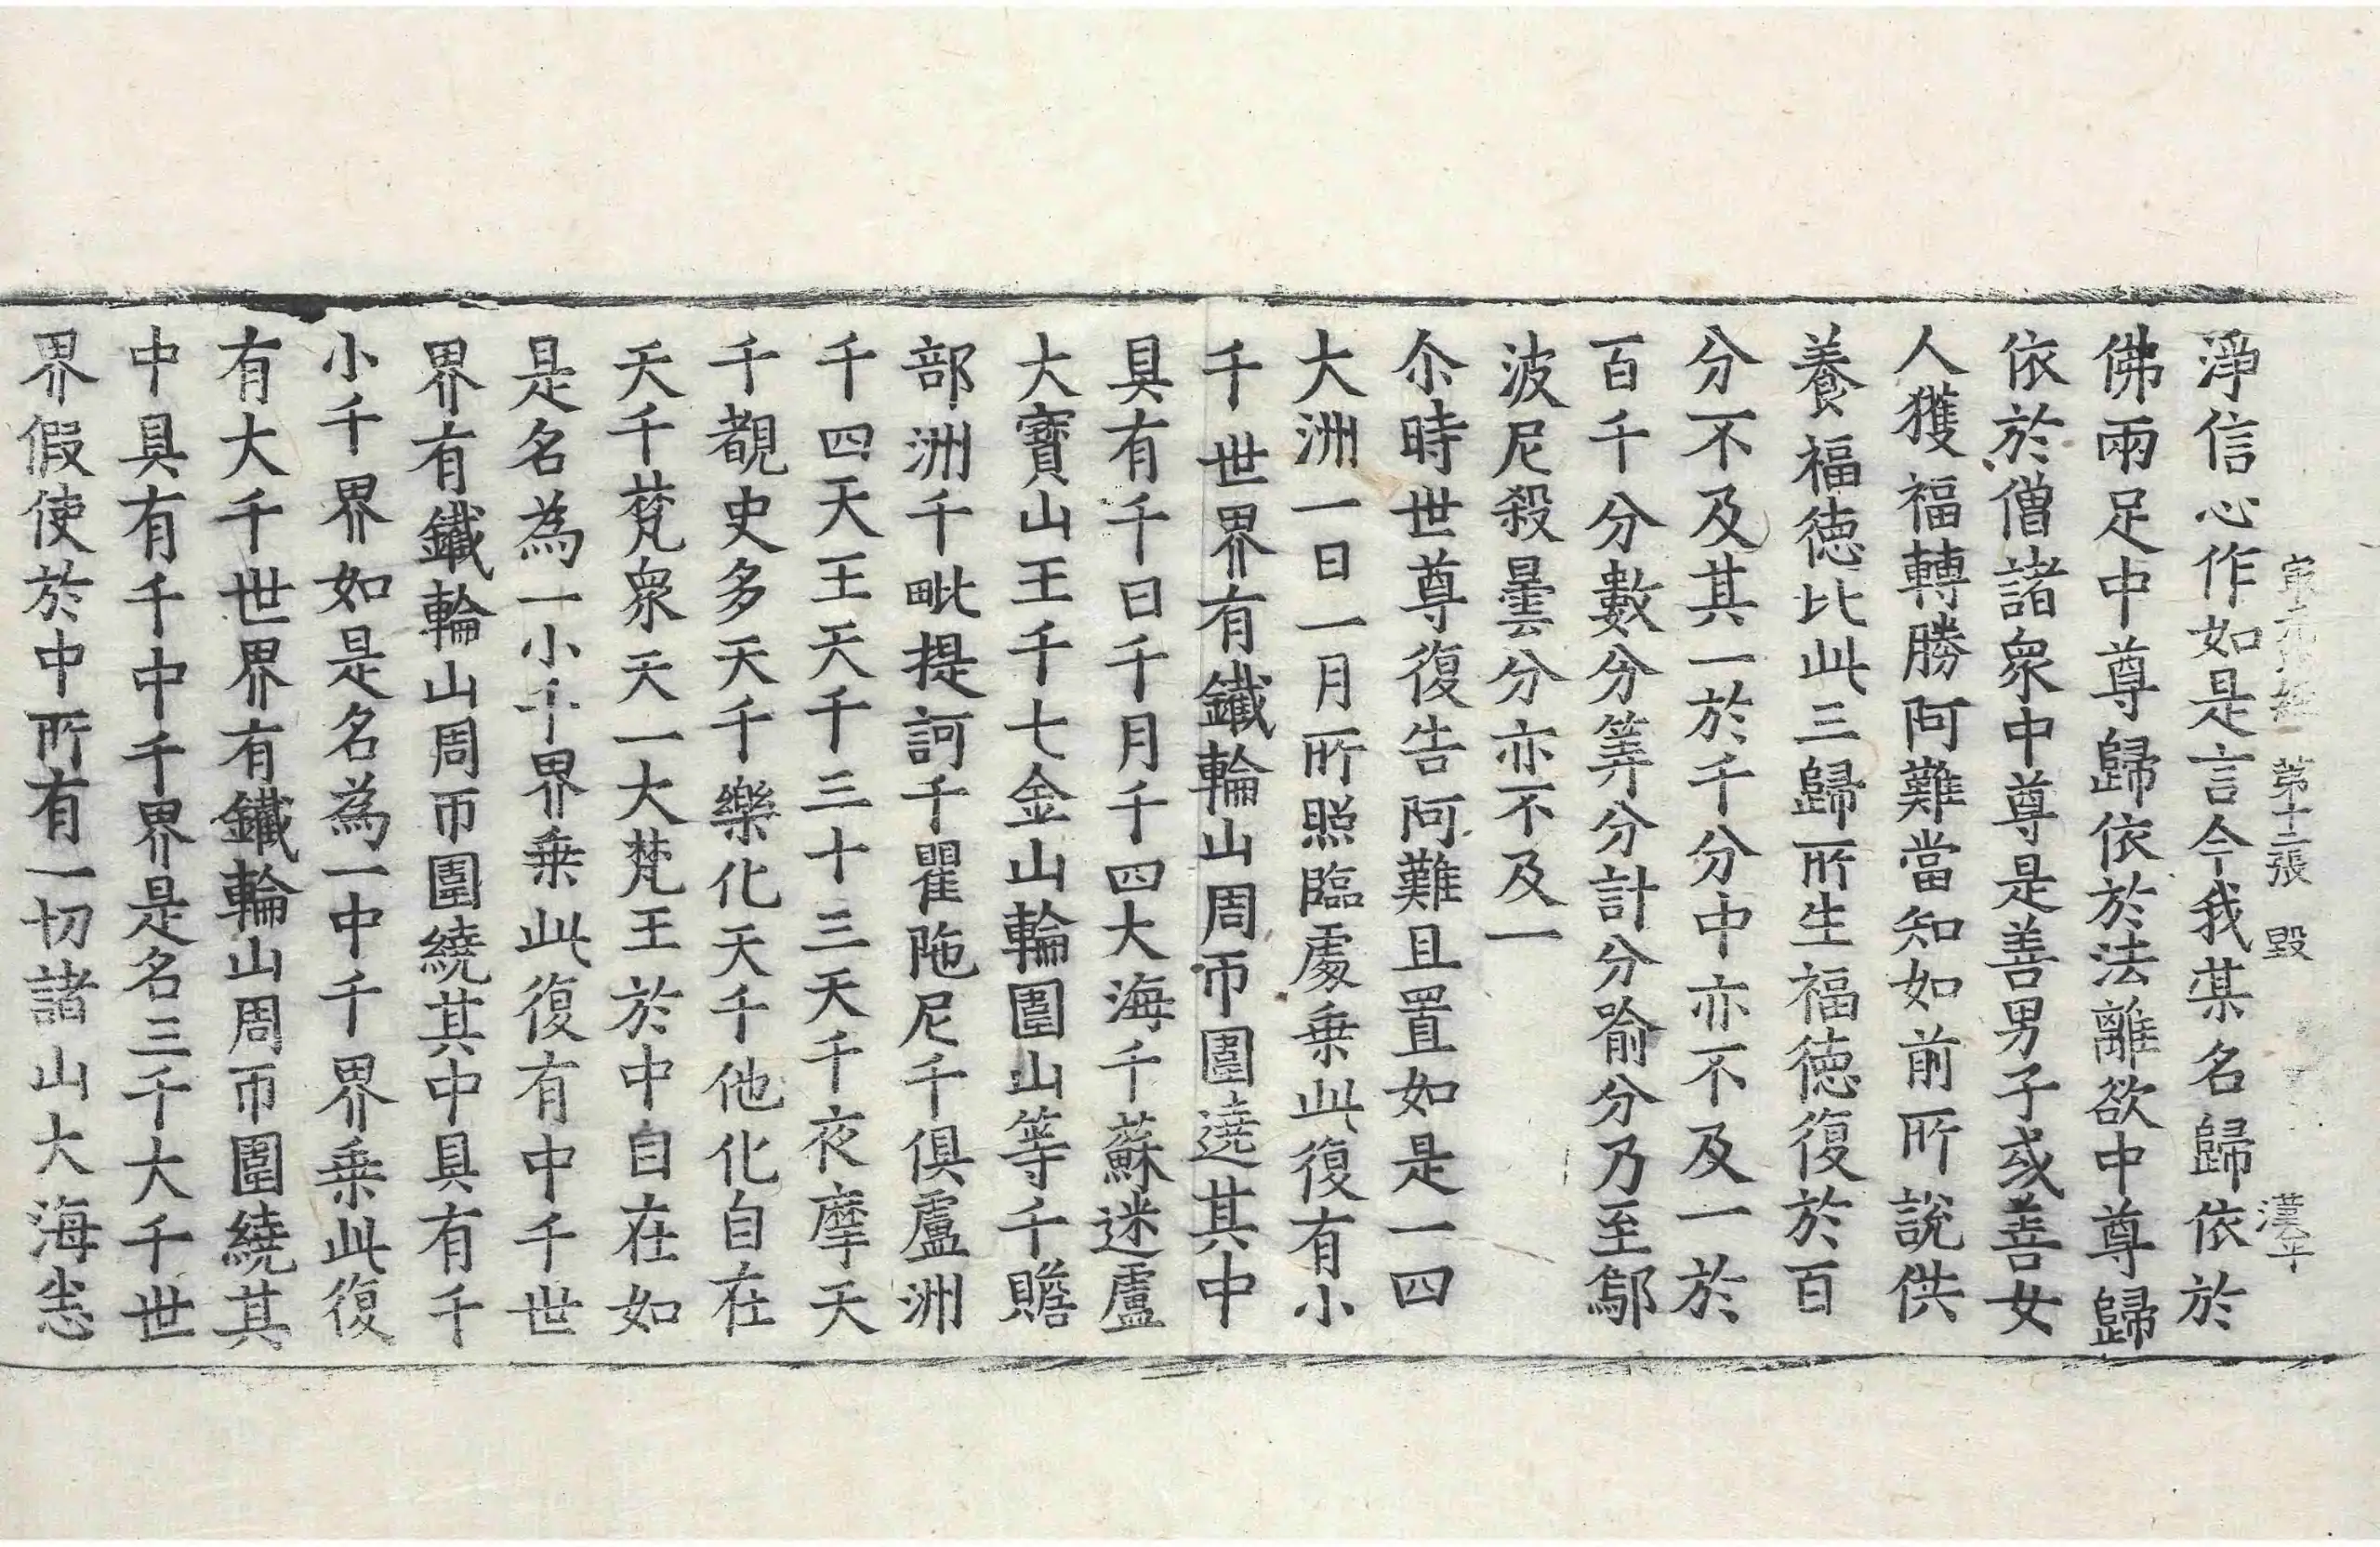 第十二張 毀 漢年
淨信心作如是言今我某名歸依於
佛兩足中尊歸依於法離欲中尊歸
依於僧諸衆中尊是善男子或善女
人獲福轉勝阿難當知如前所說供
養福德比此三歸所生福德復於百
分不及其一於千分中亦不及一於
百千分數分筭分計分喻分乃至鄔
波尼殺曇分亦不及一
尒時世尊復告阿難且置如是一四
大洲一日一月所照臨處乗此復有小
千世界有鐵輪山周帀圍遶其中
具有千日千月千四大海千蘇迷盧
大寶山王千七金山輪圍山等千贍
部洲千毗提訶千瞿陁尼千俱盧洲
千四天王天千三十三天千夜摩天
千覩史多天千樂化天千他化自在
天千梵衆天一大梵王於中自在如
是名為一小千界乗此復有中千世
界有鐵輪山周帀圍繞其中具有千
小千界如是名為一中千界乗此復
有大千世界有鐵輪山周帀圍繞其
中具有千中千界是名三千大千世
界假使於中所有一切諸山大海悉